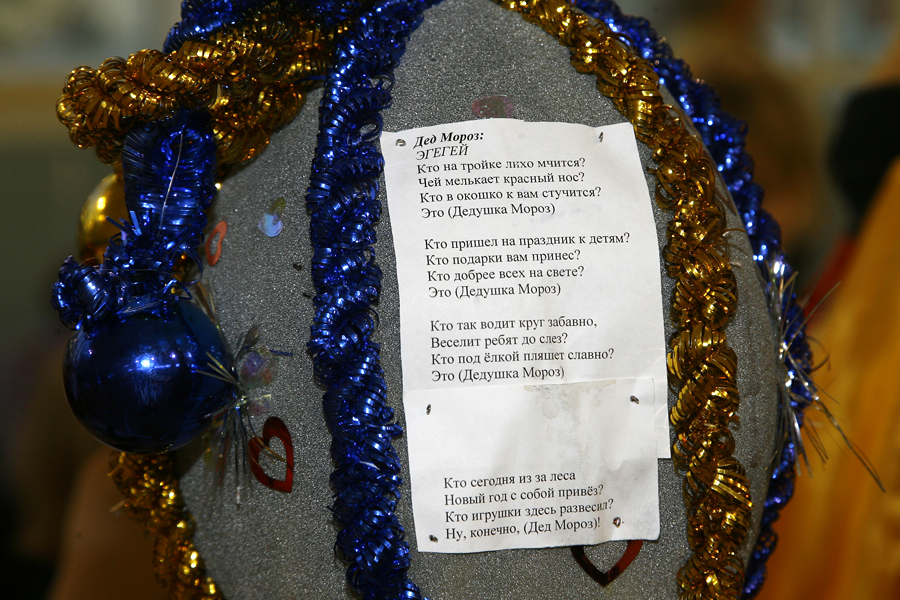 Дед Мороз:
ЭГЕГЕЙ
Кто на тройке лихо мчится?
Чей мелькает красный нос?
Кто в окошко к вам стучится?
Это (Дедушка Мороз)
Кто пришел на праздник к детям?
Кто подарки вам принес?
Кто добрее всех на свете?
Это (Дедушка Мороз)
Кто так водит круг забавно,
Веселит ребят до слез?
Кто под ёлкой пляшет славно?
Это (Дедушка Мороз)
Кто сегодня из за леса
Новый год с собой привёз?
Кто игрушки здесь развесил?
Ну, конечно, (Дед Мороз)!